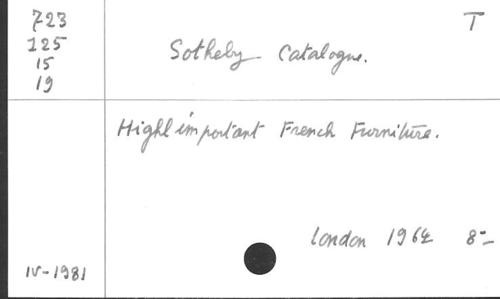 723
125
15
19
T
Sotheby Catalogue.
Highl important French Furniture.
London 1964 8=
IV-1981